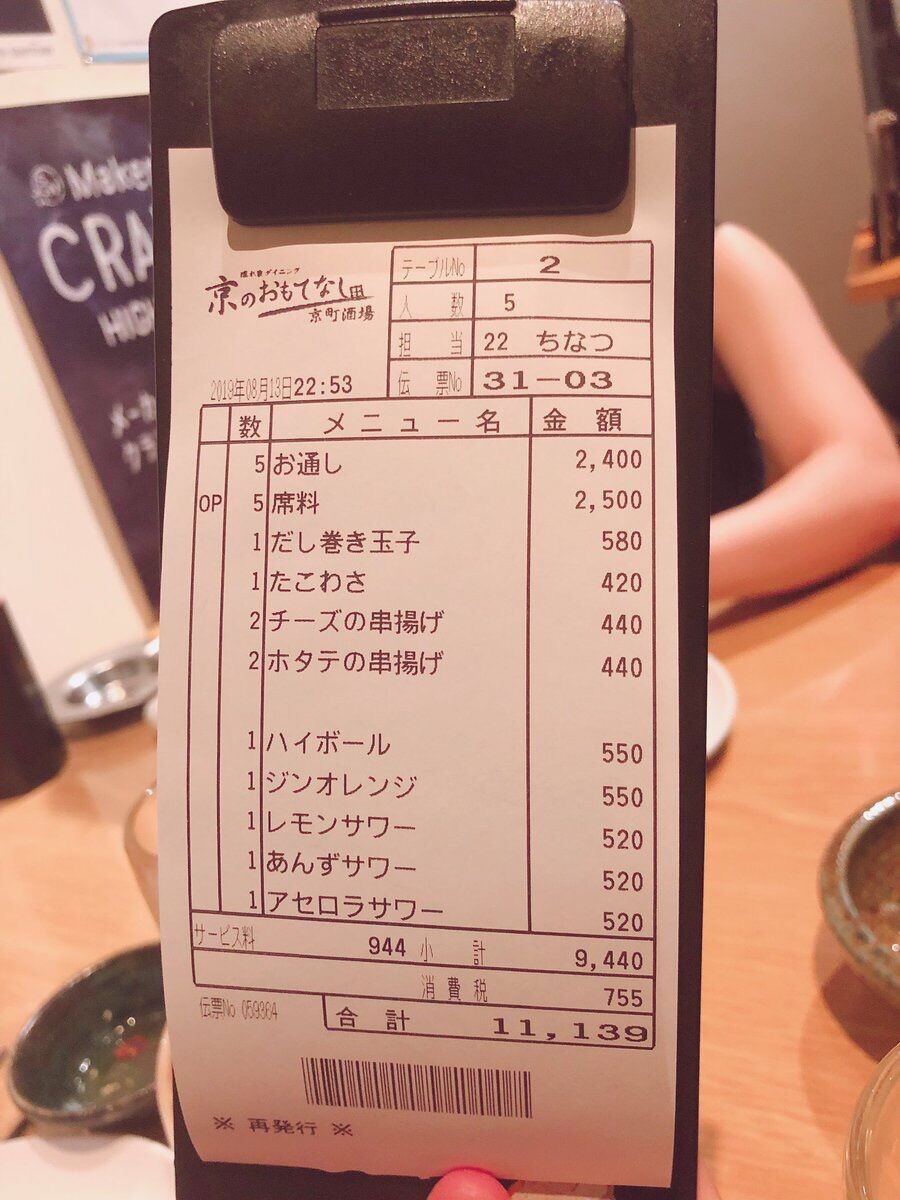 Make
CRA
HIGH
メーカ
クラ
隠れ家ダイニング
京のおもてなし
京町酒場
テーブルNo 2
人数 5
担当 22 ちなつ
伝票No 31-03
2019年08月13日22:53
数 メニュー名 金額
5 お通し 2,400
OP 5 席料 2,500
1 だし巻き玉子 580
1 たこわさ 420
2 チーズの串揚げ 440
2 ホタテの串揚げ 440
1 ハイボール 550
1 ジンオレンジ 550
1 レモンサワー 520
1 あんずサワー 520
1 アセロラサワー 520
サービス料 944 小計 9,440
消費税 755
伝票No 059364
合計 11,139
※ 再発行 ※